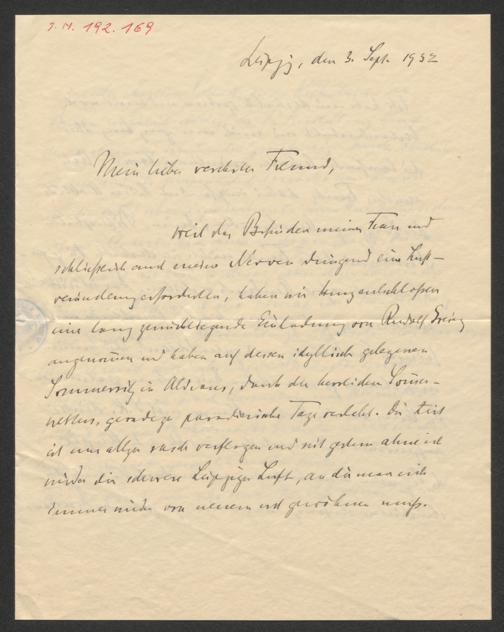 I. N. 192.169
Leipzig, den 3. Sept. 1932
Mein lieber verehrter Freund,
weil das Befinden meiner Frau und
schliesslich auch meine Nerven dringend eine Luft-
veränderung erforderten, haben wir kurzentschlossen
eine lang zurückliegende Einladung von Rudolf
angenommen und haben auf dessen idyllisch gelegenen
Sommersitz in Aldrans, durch den herrlichen Sonnen-
geradezu paradiesische Tage verlebt. Die Zeit
ist nur allzu rasch verflogen und seit gestern atme ich
wieder die schwere Leipziger Luft, an die man sich
immer wieder von neuem erst gewöhnen muss.